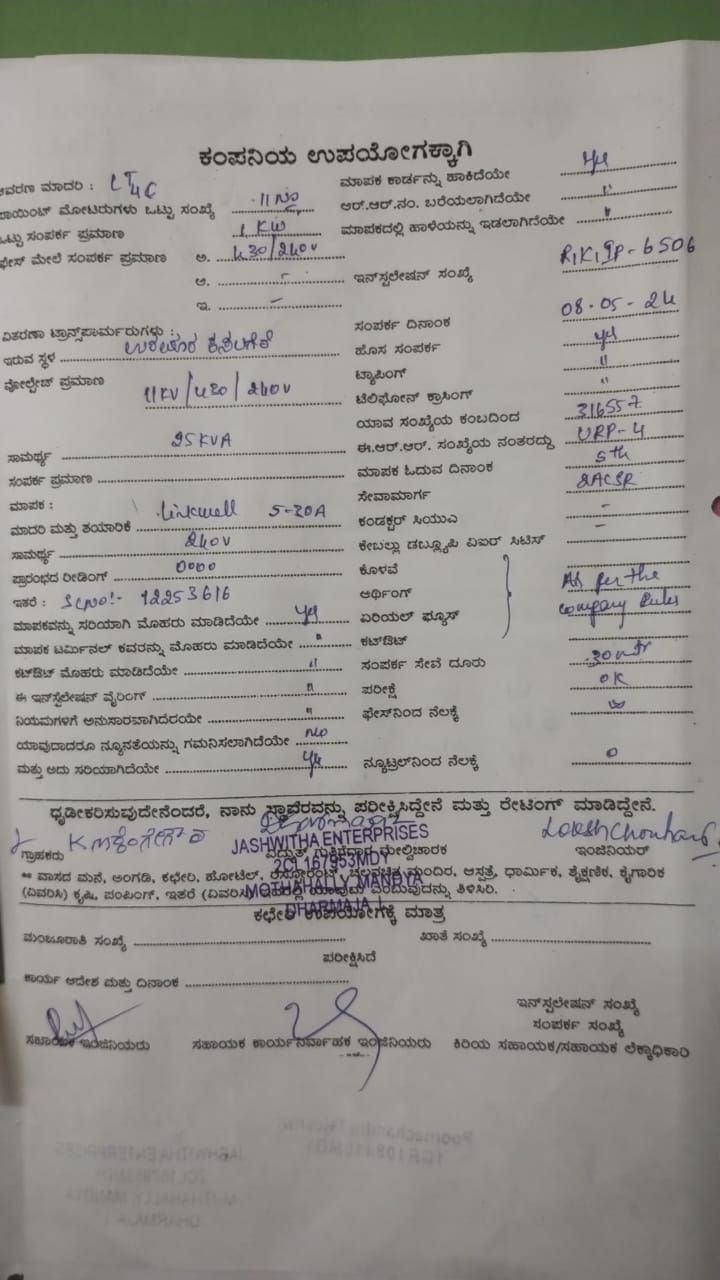 ಕಂಪನಿಯ ಉಪಯೋಗಕ್ಕಾಗಿ
ಆವರಣ ಮಾದರಿ : LT4C ಮಾಪಕ ಕಾರ್ಡನ್ನು ಹಾಕಿದೆಯೇ yes
ಪಾಯಿಂಟ್ ಮೋಟರುಗಳು ಒಟ್ಟು ಸಂಖ್ಯೆ 11 No ಆರ್.ಆರ್.ನಂ. ಬರೆಯಲಾಗಿದೆಯೇ "
ಒಟ್ಟು ಸಂಪರ್ಕ ಪ್ರಮಾಣ 1 KW ಮಾಪಕದಲ್ಲಿ ಹಾಳೆಯನ್ನು ಇಡಲಾಗಿದೆಯೇ "
ಫೇಸ್ ಮೇಲೆ ಸಂಪರ್ಕ ಪ್ರಮಾಣ ಅ. 430/240V
ಆ. - ಇನ್‌ಸ್ಟಲೇಷನ್ ಸಂಖ್ಯೆ
ಇ. -
ವಿತರಣಾ ಟ್ರಾನ್ಸ್‌ಪಾರ್ಮರುಗಳು : ಸಂಪರ್ಕ ದಿನಾಂಕ 08-05-24
ಇರುವ ಸ್ಥಳ ಹೊಸ ಸಂಪರ್ಕ yes
ವೋಲ್ಟೇಜ್ ಪ್ರಮಾಣ 11KV/430/240V ಟ್ಯಾಪಿಂಗ್ "
ಟೆಲಿಫೋನ್ ಕ್ರಾಸಿಂಗ್ "
ಯಾವ ಸಂಖ್ಯೆಯ ಕಂಬದಿಂದ 316557
ಸಾಮರ್ಥ್ಯ 25KVA ಈ.ಆರ್.ಆರ್. ಸಂಖ್ಯೆಯ ನಂತರದ್ದು URP-4
ಸಂಪರ್ಕ ಪ್ರಮಾಣ ಮಾಪಕ ಓದುವ ದಿನಾಂಕ 5th
ಮಾಪಕ : ಸೇವಾಮಾರ್ಗ 2ACSR
ಮಾದರಿ ಮತ್ತು ತಯಾರಿಕೆ Linkwell 5-20A ಕಂಡಕ್ಟರ್ ಸಿಯುಎ -
ಸಾಮರ್ಥ್ಯ 240V ಕೇಬಲ್ಲು ಡಬ್ಲ್ಯೂಪಿ ವಿಐರ್ ಸಿಟಿಸ್ -
ಪ್ರಾರಂಭದ ರೀಡಿಂಗ್ 0000 ಕೊಳವೆ
ಇತರೆ : SLNO:- 12253616 ಅರ್ಥಿಂಗ್ As per the
ಮಾಪಕವನ್ನು ಸರಿಯಾಗಿ ಮೊಹರು ಮಾಡಿದೆಯೇ yes ಏರಿಯಲ್ ಫ್ಯೂಸ್ company Rules
ಮಾಪಕ ಟರ್ಮಿನಲ್ ಕವರನ್ನು ಮೊಹರು ಮಾಡಿದೆಯೇ " ಕಟ್‌ಔಟ್
ಕಟ್‌ಔಟ್ ಮೊಹರು ಮಾಡಿದೆಯೇ " ಸಂಪರ್ಕ ಸೇವೆ ದೂರು 30mtr
ಈ ಇನ್‌ಸ್ಟಲೇಷನ್ ವೈರಿಂಗ್ " ಪರೀಕ್ಷೆ OK
ನಿಯಮಗಳಿಗೆ ಅನುಸಾರವಾಗಿದೆಯೇ " ಫೇಸ್‌ನಿಂದ ನೆಲಕ್ಕೆ
ಯಾವುದಾದರೂ ನ್ಯೂನತೆಯನ್ನು ಗಮನಿಸಲಾಗಿದೆಯೇ no
ಮತ್ತು ಅದು ಸರಿಯಾಗಿದೆಯೇ yes ನ್ಯೂಟ್ರಲ್‌ನಿಂದ ನೆಲಕ್ಕೆ 0
ಧೃಡೀಕರಿಸುವುದೇನೆಂದರೆ, ನಾನು ಸ್ಥಾವರವನ್ನು ಪರೀಕ್ಷಿಸಿದ್ದೇನೆ ಮತ್ತು ರೇಟಿಂಗ್ ಮಾಡಿದ್ದೇನೆ.
JASHWITHA ENTERPRISES
ಗ್ರಾಹಕರು ವಿದ್ಯುತ್ ಗುತ್ತಿಗೆದಾರ ಮೇಲ್ವಿಚಾರಕ ಇಂಜಿನಿಯರ್
2CL167953MDY
** ವಾಸದ ಮನೆ, ಅಂಗಡಿ, ಕಛೇರಿ, ಹೋಟೆಲ್, ರೆಸ್ಟೋರೆಂಟ್, ಚಲನಚಿತ್ರ ಮಂದಿರ, ಆಸ್ಪತ್ರೆ, ಧಾರ್ಮಿಕ, ಶೈಕ್ಷಣಿಕ, ಕೈಗಾರಿಕೆ
MOTHAHALLY, MANDYA
(ವಿವರಿಸಿ) ಕೃಷಿ, ಪಂಪಿಂಗ್, ಇತರೆ (ವಿವರಿಸಿ) ಇವುಗಳಲ್ಲಿ ಯಾವುದು ಎಂಬುದನ್ನು ತಿಳಿಸಿರಿ.
DHARMAJA L
ಕಛೇರಿ ಉಪಯೋಗಕ್ಕೆ ಮಾತ್ರ
ಮಂಜೂರಾತಿ ಸಂಖ್ಯೆ ಖಾತೆ ಸಂಖ್ಯೆ
ಪರೀಕ್ಷಿಸಿದೆ
ಕಾರ್ಯ ಆದೇಶ ಮತ್ತು ದಿನಾಂಕ
ಇನ್‌ಸ್ಟಲೇಷನ್ ಸಂಖ್ಯೆ
ಸಂಪರ್ಕ ಸಂಖ್ಯೆ
ಸಹಾಯಕ ಇಂಜಿನಿಯರು ಸಹಾಯಕ ಕಾರ್ಯನಿರ್ವಾಹಕ ಇಂಜಿನಿಯರು ಕಿರಿಯ ಸಹಾಯಕ/ಸಹಾಯಕ ಲೆಕ್ಕಾಧಿಕಾರಿ